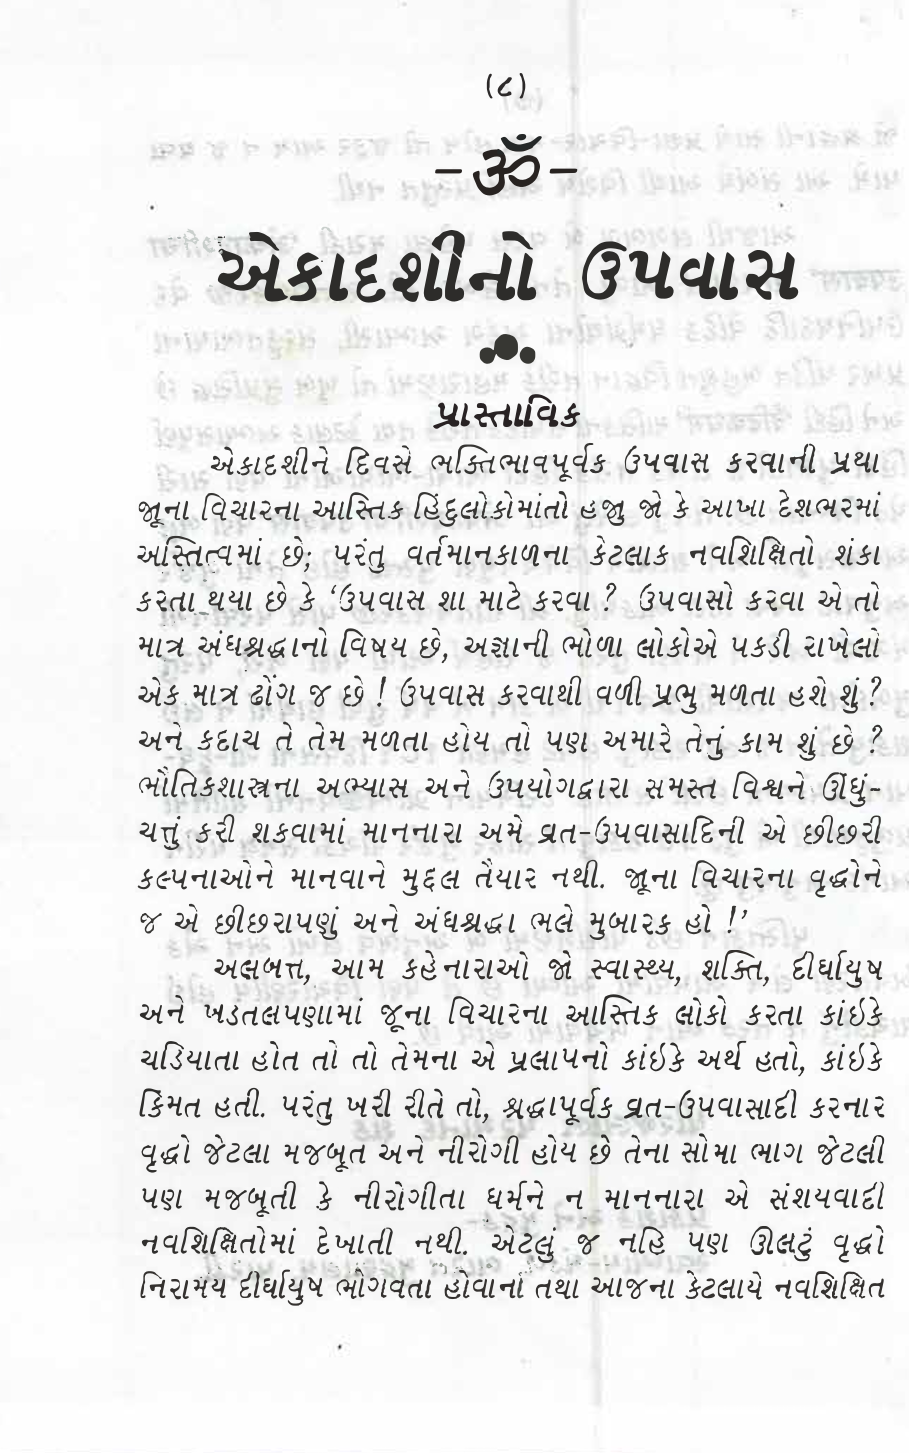 (૮)
-ૐ-
એકાદશીનો ઉપવાસ
પ્રાસ્તાવિક
એકાદશીને દિવસે ભક્તિભાવપૂર્વક ઉપવાસ કરવાની પ્રથા
જૂના વિચારના આસ્તિક હિંદુલોકોમાંતો હજુ જો કે આખા દેશભરમાં
અસ્તિત્વમાં છે; પરંતુ વર્તમાનકાળના કેટલાક નવશિક્ષિતો શંકા
કરતા થયા છે કે ‘ઉપવાસ શા માટે કરવા ? ઉપવાસો કરવા એ તો
માત્ર અંધશ્રદ્ધાનો વિષય છે, અજ્ઞાની ભોળા લોકોએ પકડી રાખેલો
એક માત્ર ઢોંગ જ છે ! ઉપવાસ કરવાથી વળી પ્રભુ મળતા હશે શું ?
અને કદાચ તે તેમ મળતા હોય તો પણ અમારે તેનું કામ શું છે ?
ભૌતિકશાસ્ત્રના અભ્યાસ અને ઉપયોગદ્વારા સમસ્ત વિશ્વને ઊંધું-
ચત્તું કરી શકવામાં માનનારા અમે વ્રત-ઉપવાસાદિની એ છીછરી
કલ્પનાઓને માનવાને મુદ્દલ તૈયાર નથી. જૂના વિચારના વૃદ્ધોને
જ એ છીછરાપણું અને અંધશ્રદ્ધા ભલે મુબારક હો !’
અલબત્ત, આમ કહેનારાઓ જો સ્વાસ્થ્ય, શક્તિ, દીર્ઘાયુષ
અને ખડતલપણામાં જૂના વિચારના આસ્તિક લોકો કરતા કાંઇકે
ચડિયાતા હોત તો તો તેમના એ પ્રલાપનો કાંઇકે અર્થ હતો, કાંઇકે
કિંમત હતી. પરંતુ ખરી રીતે તો, શ્રદ્ધાપૂર્વક વ્રત-ઉપવાસાદી કરનાર
વૃદ્ધો જેટલા મજબૂત અને નીરોગી હોય છે તેના સોમા ભાગ જેટલી
પણ મજબૂતી કે નીરોગીતા ધર્મને ન માનનારા એ સંશયવાદી
નવશિક્ષિતોમાં દેખાતી નથી. એટલું જ નહિ પણ ઊલટું વૃદ્ધો
નિરામય દીર્ઘાયુષ ભોગવતા હોવાનાં તથા આજના કેટલાયે નવશિક્ષિત